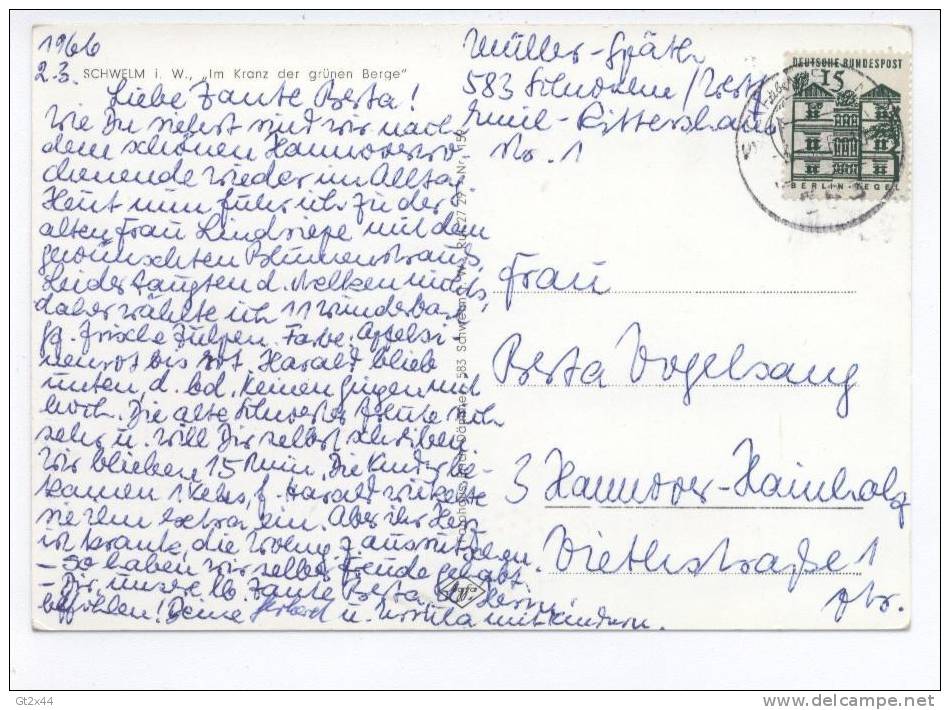 1966
2.3.
SCHWELM i. W., „Im Kranz der grünen Berge"
Liebe Tante Berta!
Wie Du siehst sind wir nach
dem schönen Hannoverwo-
chenende wieder im Alltag.
Heut nun fuhr ich zu der
alten Frau Lindsiepe mit dem
gewünschten Blumenstrauß,
leider taugten d. Nelken nichts,
daher wählte ich 11 wunderba-
frische Tulpen. Farbe: Apfelsi-
nenrot bis rot. Harald blieb
unten, d. bd. Kleinen gingen mit
hoch. Die alte Schwester freute sich
sehr u. will Dir selbst schreiben.
Wir blieben 15 Min. Die Kinder be-
kamen 1 Keks, f. Harald wickelte
sie ihn extra ein. Aber ihr Herz
ist krank, die
- So haben wir selber Freude gehabt.
- Dir, unsere lb. Tante Berta
befohlen! Deine u. Ursula mit Kindern.
583 Schwelm
Agfa
Müller-Späth
583 Schwelm/Westf
Emil-Rittershaus
Nr. 1
DEUTSCHE BUNDESPOST
15
BERLIN-TEGEL
Frau
Berta Vogelsang
3 Hannover-Hainholz
Viethstraße 1
Gt2x44
delcampe.net